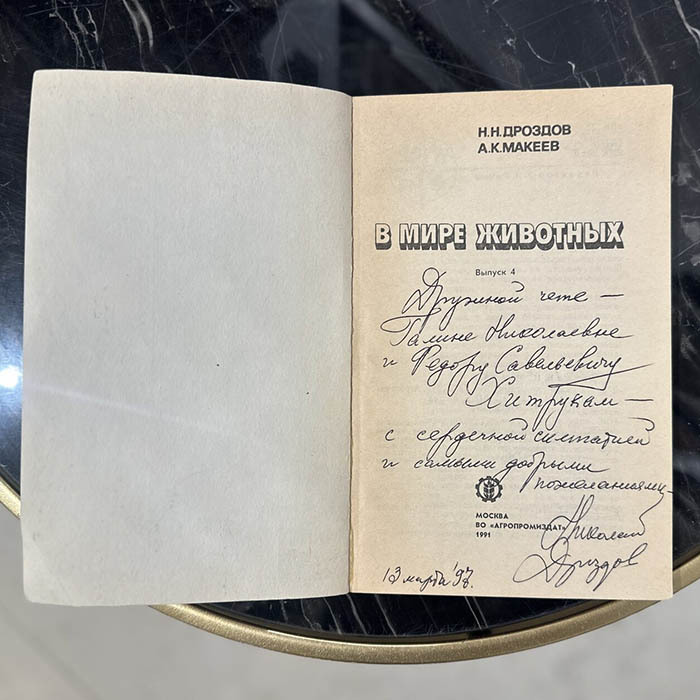 Н.Н.ДРОЗДОВ
А.К.МАКЕЕВ
В МИРЕ ЖИВОТНЫХ
Выпуск 4
Дружной чете –
Галине Николаевне
и Федору Савельевичу
Хитрукам –
с сердечной симпатией
и самыми добрыми
пожеланиями –
МОСКВА
ВО «АГРОПРОМИЗДАТ»
1991
Николай
Дроздов
13 марта '97.